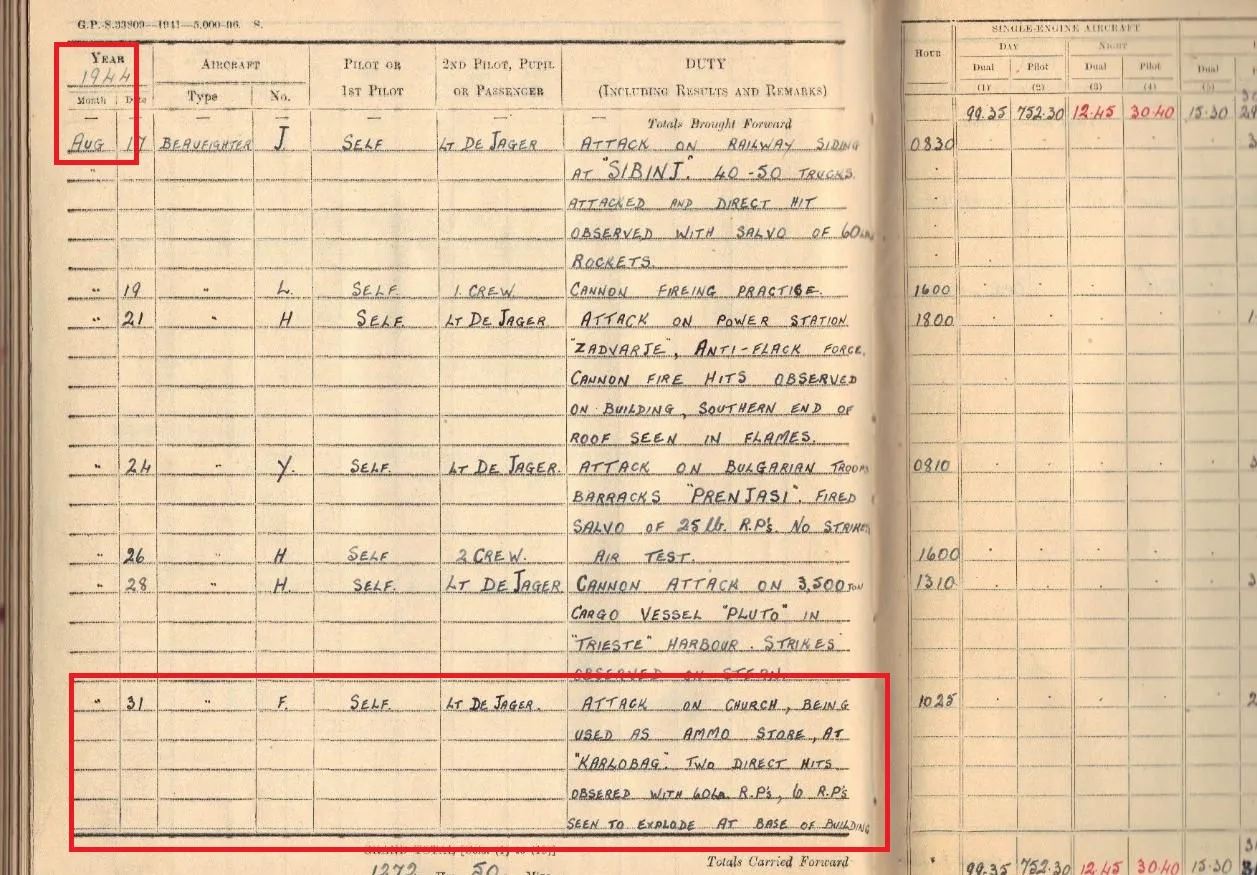 G.P.-S.33809—1941—5,000-96. S.
YEAR
1944
AIRCRAFT
PILOT OR
1ST PILOT
2ND PILOT, PUPIL
OR PASSENGER
DUTY
(INCLUDING RESULTS AND REMARKS)
HOUR
SINGLE-ENGINE AIRCRAFT
DAY
NIGHT
Month
Date
Type
No.
Dual
Pilot
Dual
Pilot
Dual
(1)
(2)
(3)
(4)
(5)
— — — — — — — Totals Brought Forward
99.35 752.30 12.45 30.40 15.30
AUG 17 BEAUFIGHTER J. SELF LT DE JAGER ATTACK ON RAILWAY SIDING 0830
" AT "SIBINJ". 40-50 TRUCKS.
ATTACKED AND DIRECT HIT
OBSERVED WITH SALVO OF 60LB.
ROCKETS.
" 19 " L. SELF. 1. CREW. CANNON FIREING PRACTISE. 1600
" 21 " H SELF. LT DE JAGER. ATTACK ON POWER STATION 1800
"ZADVARJE", ANTI-FLACK FORCE,
CANNON FIRE HITS OBSERVED
ON BUILDING, SOUTHERN END OF
ROOF SEEN IN FLAMES.
" 24 " Y. SELF. LT DE JAGER. ATTACK ON BULGARIAN TROOPS 0810
BARRACKS "PRENJASI". FIRED
SALVO OF 25 lb. R.P's. NO STRIKES
" 26 " H SELF 2 CREW. AIR TEST. 1600
" 28 " H. SELF. LT DE JAGER CANNON ATTACK ON 3,500 TON 1310
CARGO VESSEL "PLUTO" IN
"TRIESTE" HARBOUR. STRIKES
OBSERVED ON STERN.
" 31 " F. SELF. LT DE JAGER. ATTACK ON CHURCH, BEING 1025
USED AS AMMO STORE, AT
"KARLOBAG". TWO DIRECT HITS
OBSERED WITH 60LB. R.P's, 6 R.P's
SEEN TO EXPLODE AT BASE OF BUILDING
GRAND TOTAL [Cols. (1) to (10)]
1272 50 Totals Carried Forward
99.35 752.30 12.45 30.40 15.30